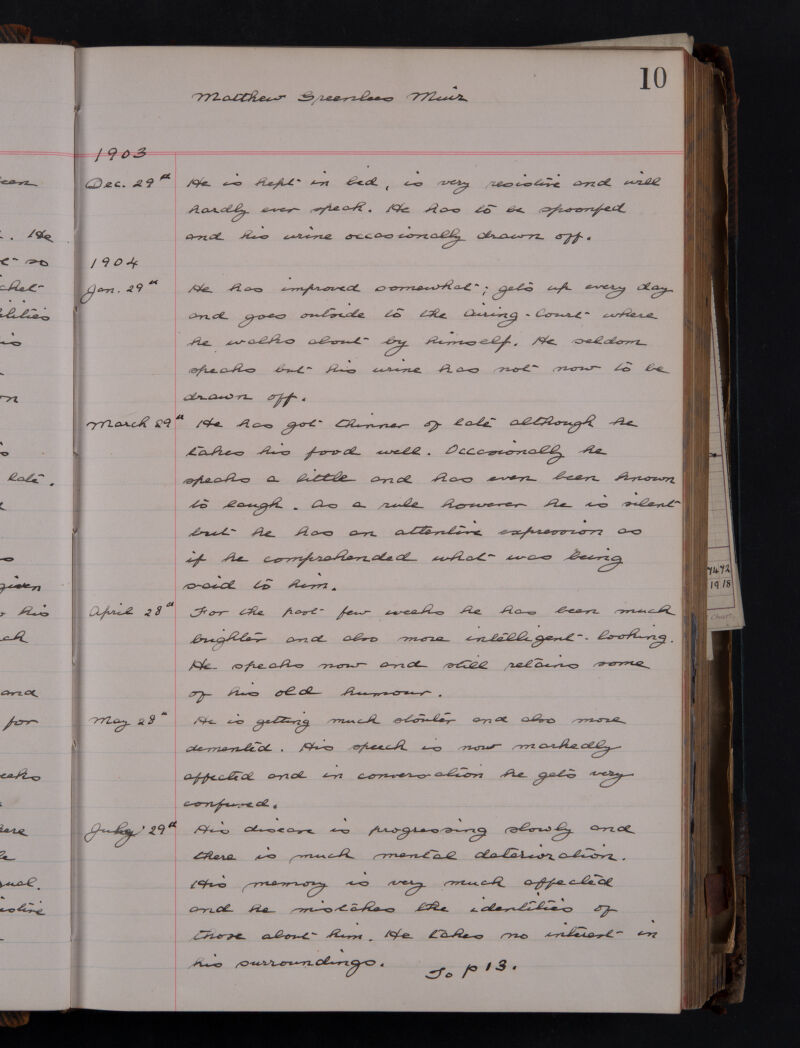 10
Matthew Greenlees Muir
1903
Dec. 29th He is kept in bed, is very resistive and will
hardly ever speak. He has to be spoonfed
and his urine occasionally drawn off.
1904
Jan. 29th He has improved somewhat; gets up every day
and goes outside to the Airing-Court where
he walks about by himself. He seldom
speaks but his urine has not now to be
drawn off.
March 29th He has got thinner of late although he
takes his food well. Occasionally he
speaks a little and has even been known
to laugh. As a rule however he is silent
but he has an attentive expression as
if he comprehended what was being
said to him.
April 28th For the past few weeks he has been much
brighter and also more intelligent-looking.
He speaks now and still retains some
of his old humour.
May 28th He is getting much stouter and also more
demented. His speech is now markedly
affected and in conversation he gets very
confused.
July 29th His disease is progressing slowly and
there is much mental deterioration.
His memory is very much affected
and he mistakes the identities of
those about him. He takes no interest in
his surroundings. To p 13.
. He
late.
given
his
and
for
7472
1918
Chart